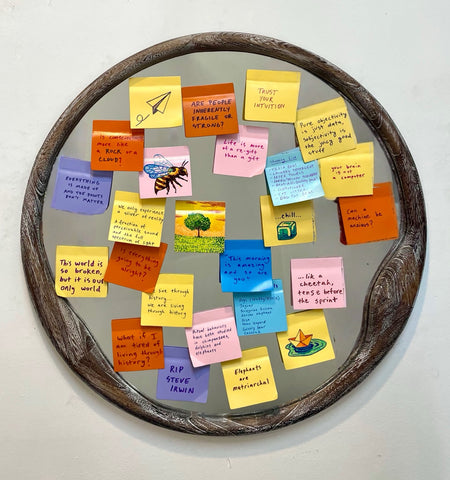 TRUST
YOUR
INTUITION
ARE PEOPLE
INHERENTLY
FRAGILE OR
STRONG?
Pure objectivity
is just data,
subjectivity is
the good
stuff
Is conscious
more like
a ROCK or a
CLOUD?
Life is more
of a re-gift
than a gift
your brain
is not
a computer
EVERYTHING
IS MADE UP
AND THE POINTS
DON'T MATTER
We only experience
a sliver of reality
A fraction of
perceivable sound
and the full
spectrum of light
...chill...
Can a
machine be
anxious?
This world is
so broken,
but it is our
only world
Is everything
going to be
alright?
"This morning
is amazing
and so are
you"
...like a
cheetah,
tense before
the sprint
see through
history
we are living
through history
What if I
am tired of
living through
history?
Ritual behaviors
have been studied
in chimpanzees,
dolphins and
elephants
RIP
STEVE
IRWIN
Elephants
are
matriarchal